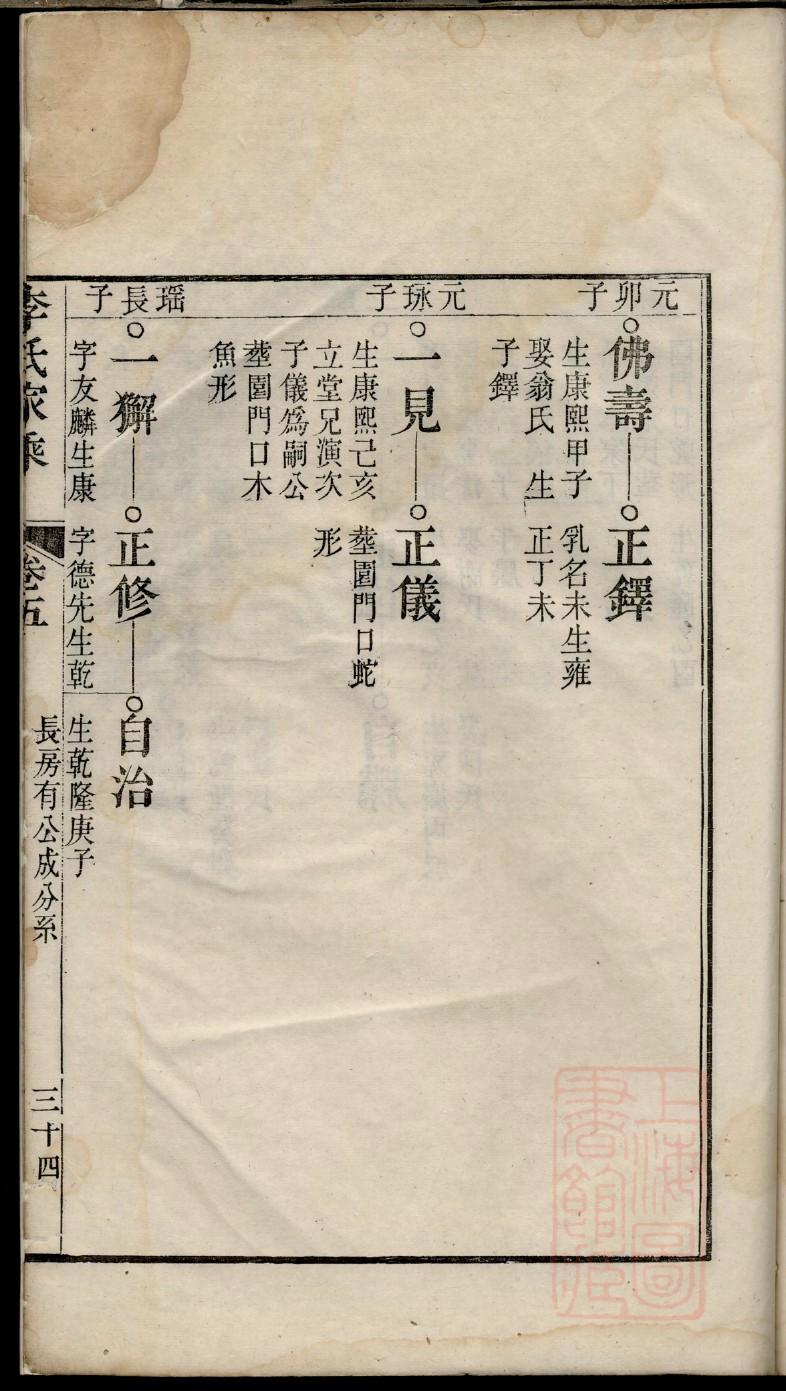 元卯子
佛壽
生康熙甲子
娶翁氏 生
子鐸
正鐸
乳名未生雍
正丁未
元琢子
一見
生康熙己亥
立堂兄演次
子儀爲嗣公
塟園門口木
魚形
正儀
塟園門口蛇
形
瑶長子
一獬
字友麟生康
正修
字德先生乾
自治
生乾隆庚子
李氏家乘
卷五
長房有公成分系
三十四
上海圖
書館藏